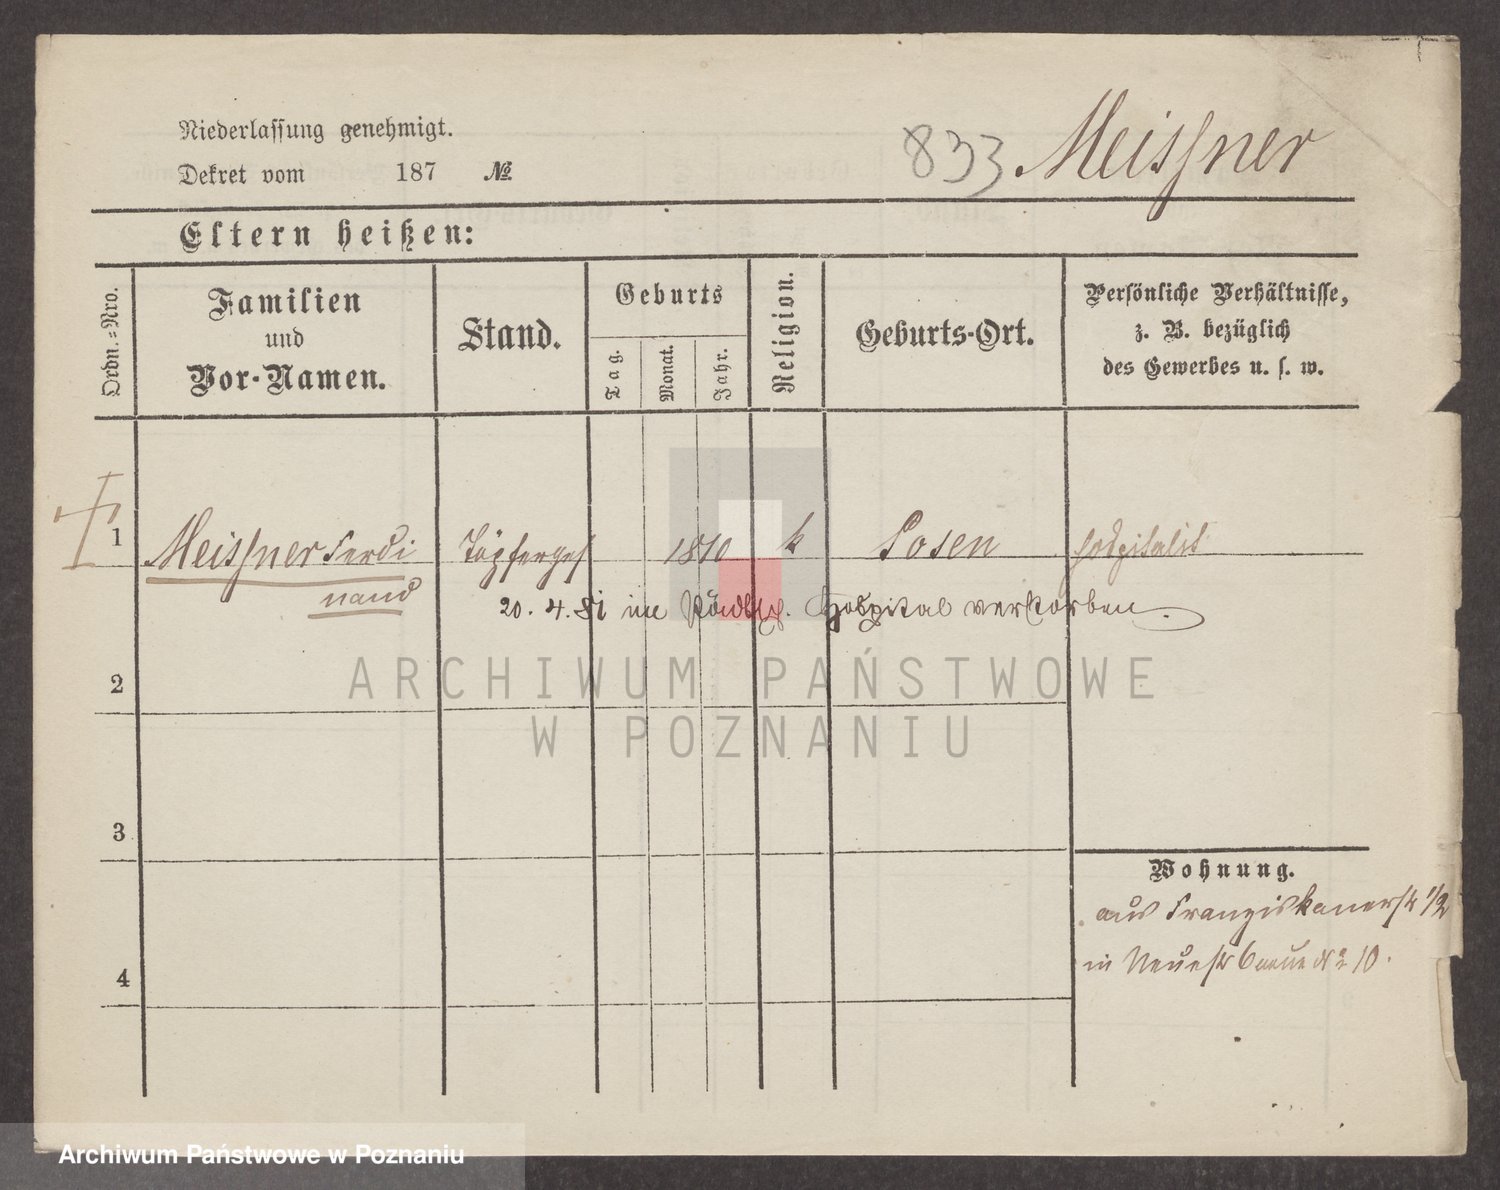 Niederlassung genehmigt.
Dekret vom 187 №
833 Meissner
Eltern heißen:
Ordn.=Nro.
Familien
und
Vor-Namen.
Stand.
Geburts
Tag.
Monat.
Jahr.
Religion.
Geburts-Ort.
Persönliche Verhältnisse,
z. B. bezüglich
des Gewerbes u. s. w.
1 Meissner Ferdi Töpferges 1810 k Posen Hospitalit
nand
20. 4. 81 im Städtsch. Hospital verstorben.
2
3
4
Wohnung.
aus Franziskanerstr 1/2
in Neuestr 6 10.
ARCHIWUM PAŃSTWOWE
W POZNANIU
Archiwum Państwowe w Poznaniu